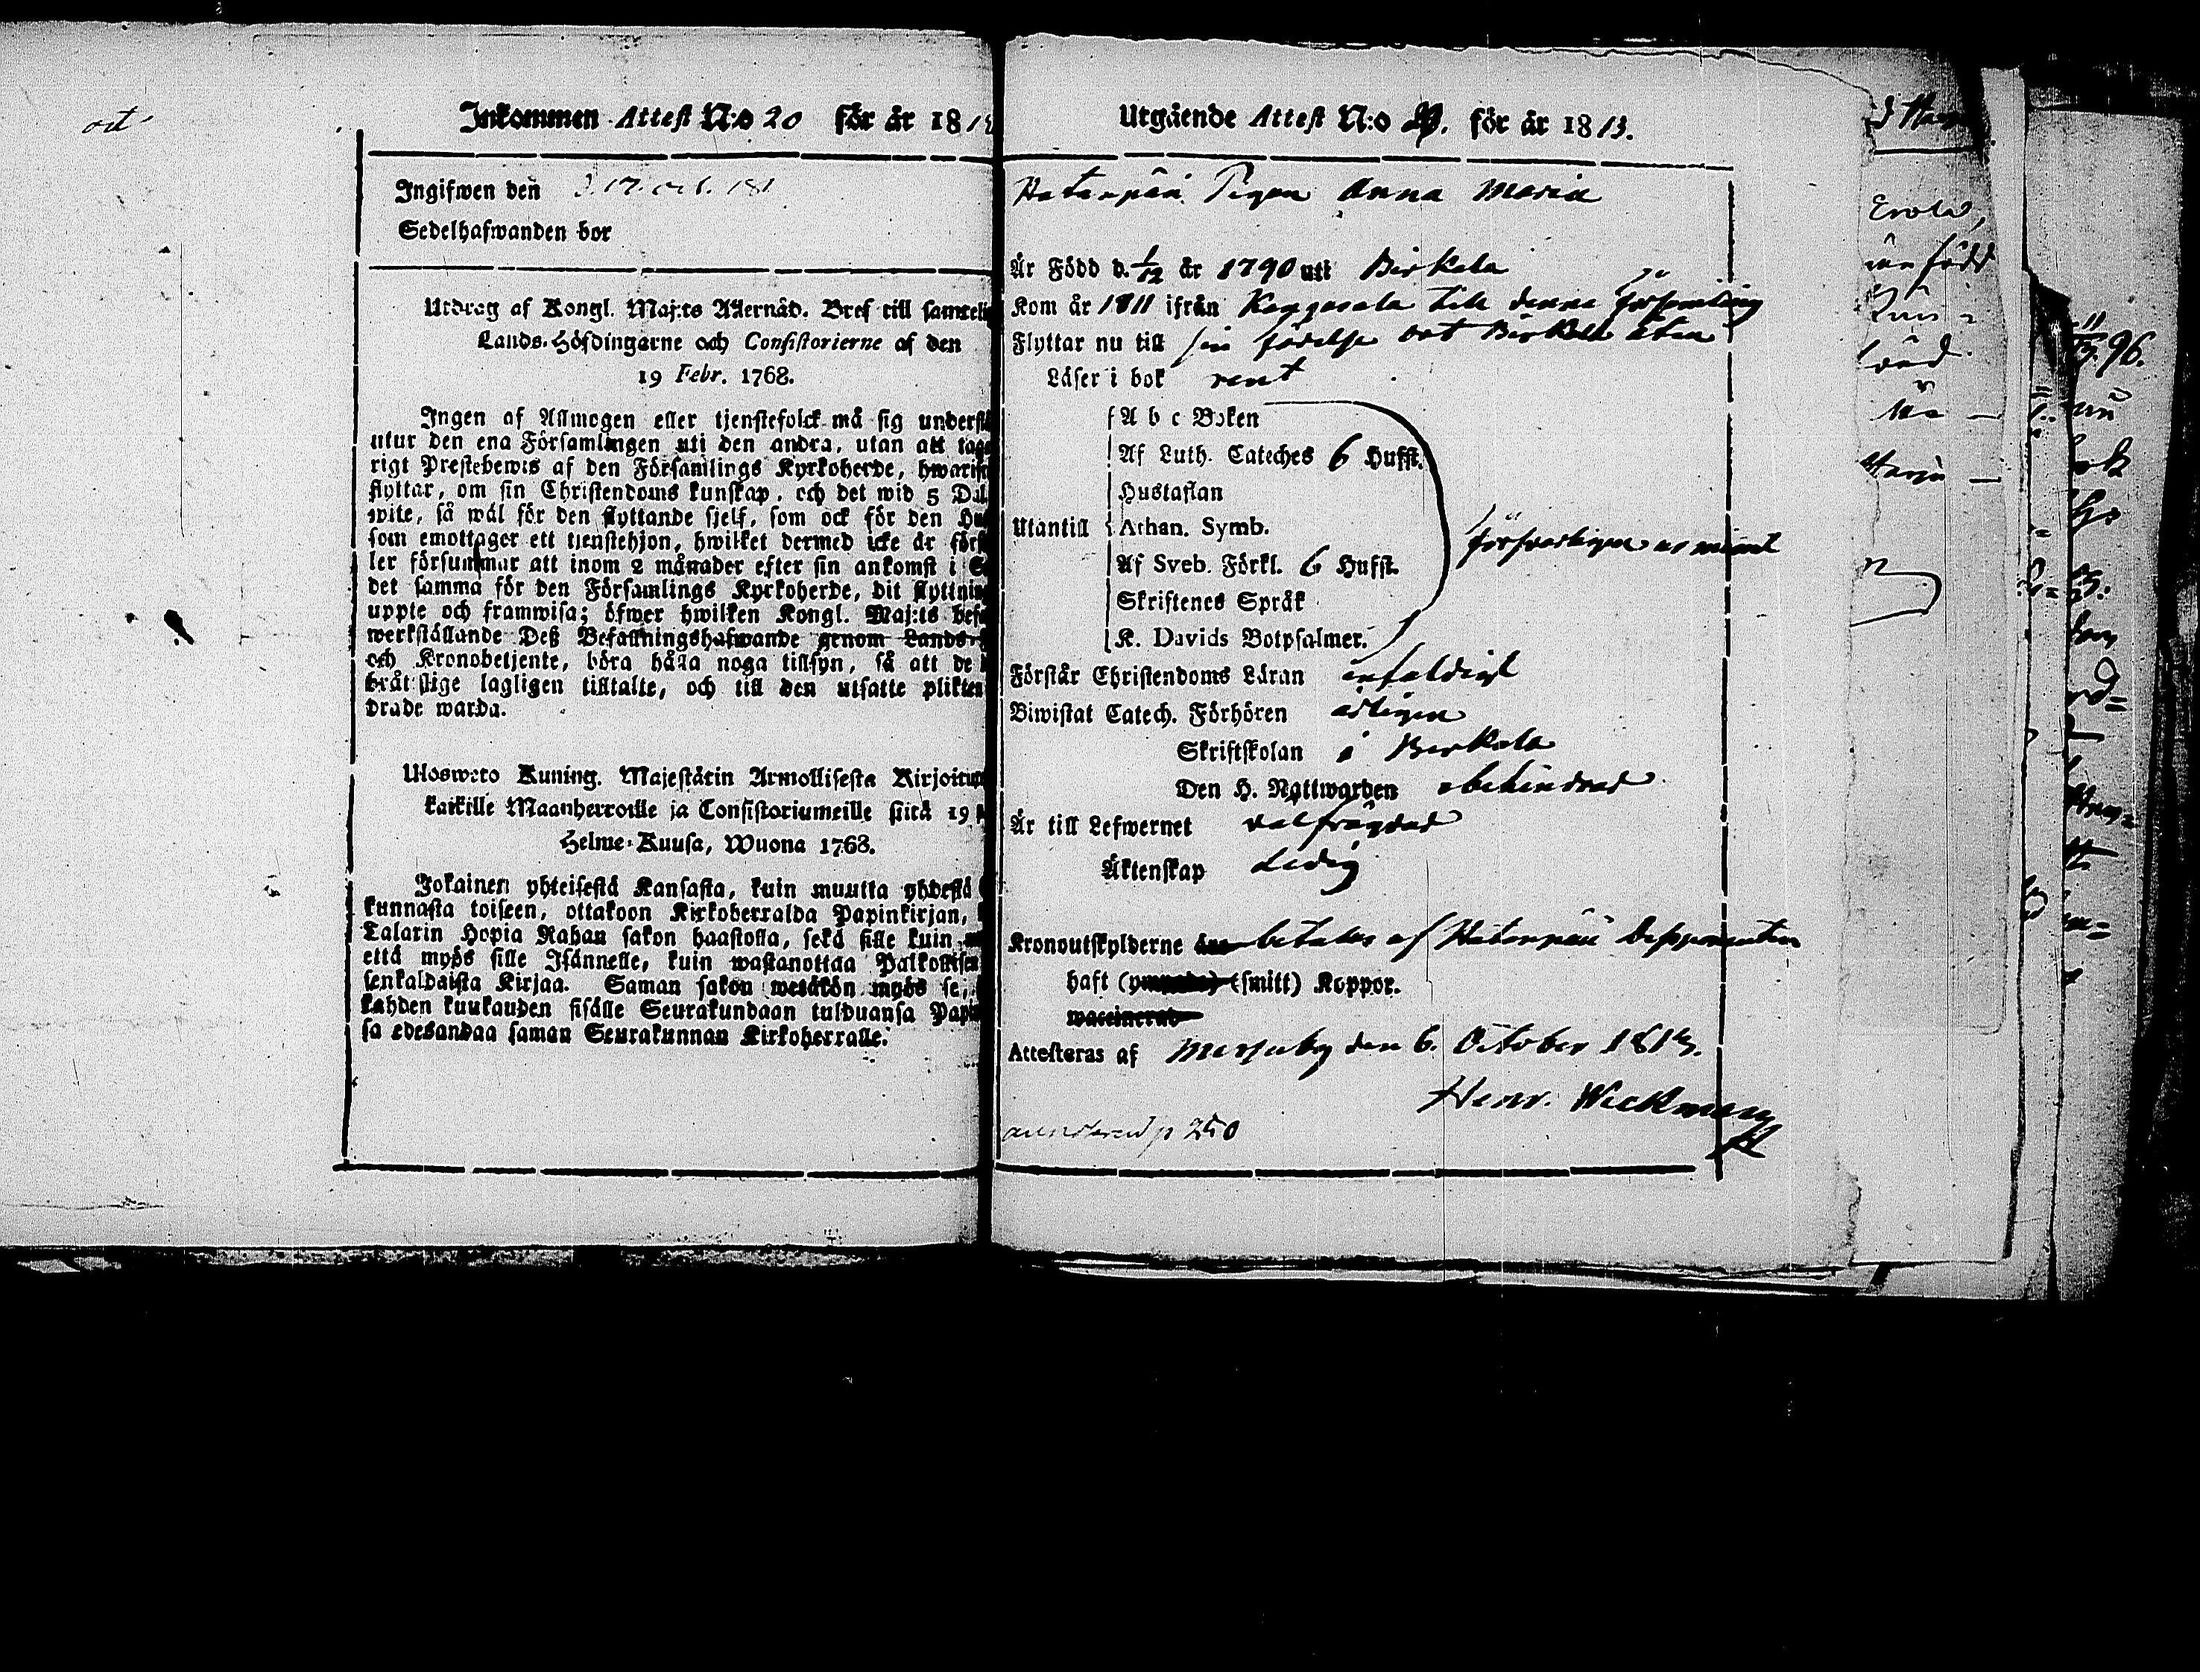 Inkommen Attest N:o 20 för år 181
Ingifwen den d. 17. oct. 181
Sedelhafwanden bor
Utdrag af Kongl. Maj:ts Allernåd. Bref till samteli
Lands-Höfdingarne och Consistorierne af den
19 Febr. 1768.
Ingen af Allmogen eller tjenstefolck må sig underst
utur den ena Församlingen uti den andra, utan att tag
rigt Prestebewis af den Församlings Kyrkoherde, hwarif
flyttar, om sin Christendoms kunskap, och det wid 5 Dal
wite, så wäl för den flyttande sjelf, som ock för den Hu
som emottager ett tjenstehjon, hwilket dermed icke är förs
ler försummar att inom 2 månader efter sin ankomst i S
det samma för den Församlings Kyrkoherde, dit flyttnin
uppte och framwisa; öfwer hwilken Kongl. Maj:ts bef
werkställande Deß Befallningshafwande genom Lands-
och Kronobetjente, böra hålla noga tillsyn, så att de
bråtslige lagligen tilltalte, och till den utsatte plikten
drade warda.
Ulosweto Kuning. Majestätin Armollisesta Kirjoitu
kaikille Maanherroille ja Consistoriumeille siitä 19
Helme-Kuusa, Wuona 1768.
Jokainen yhteisestä Kansasta, kuin muutta yhdestä
kunnasta toiseen, ottakoon Kirkoherralda Papinkirjan,
Talarin Hopia Rahan sakon haastolla, sekä sille kuin
että myös sille Isännelle, kuin wastanottaa Palkollisen
senkaldaista Kirjaa. Saman sakon wetäkön myös se,
kahden kuukauden sisälle Seurakundaan tulduansa Papi
sa edesandaa saman Seurakunnan Kirkoherralle.
Utgående Attest N:o för år 1813.
Hatanpää Pigan Anna Maria
Är Född d. 1/12 år 1790 uti Birkala
Kom år 1811 ifrån Kangasala till denna församling
Flyttar nu till sin födelse ort Birkala åter
Läser i bok rent
A b c Boken
Af Luth. Cateches 6 Hufst.
Hustaflan
Utantill Athan. Symb.
Af Sveb. Förkl. 6 Hufst.
Skriftenes Språk
K. Davids Botpsalmer.
Förstår Christendoms Läran enfaldigt
Biwistat Catech. Förhören årligen
Skriftskolan i Birkala
Den H. Nattwarden obehindrad
Är till Lefwernet välfrägdad
Äktenskap Ledig
Kronoutskylderne betalas af Hatanpää
haft (ympade) (smitt) Koppor.
waccinerad
Attesteras af Messuby den 6. October 1813.
Henr. Wickman
p 250